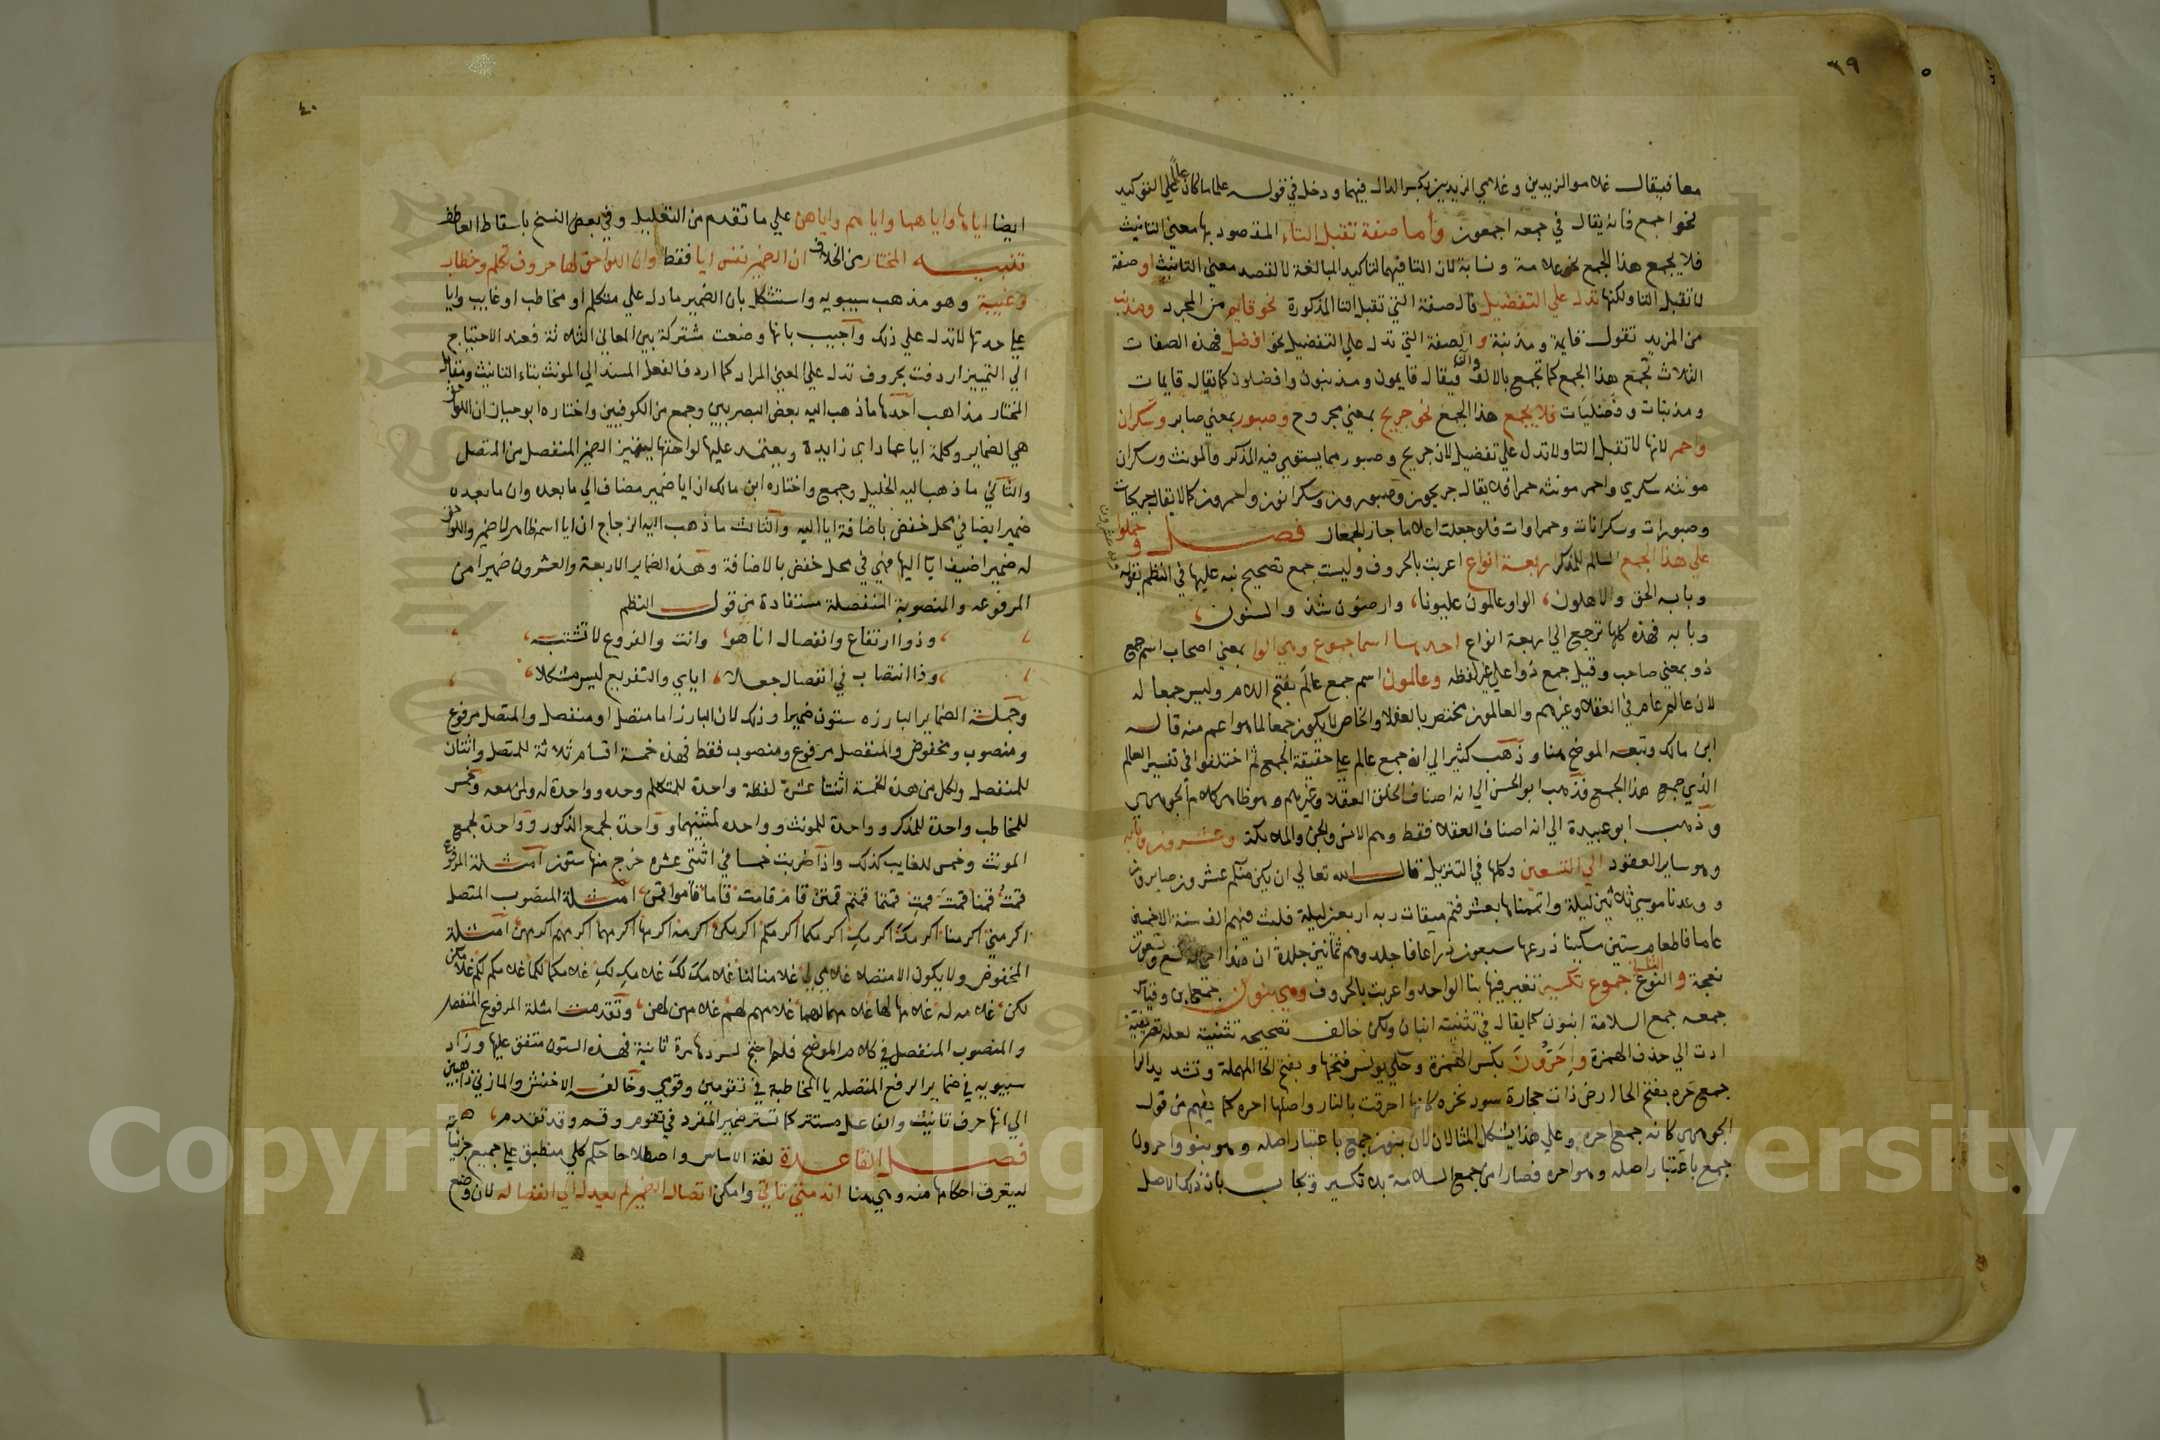 ٣٩
معا فيقال غلامو الزيدين وغلامي الزيدين بكسر الدال فيهما ودخل في قوله علما ما كان علما للتوكيد
نحو اجمع فانه يقال في جمعه اجمعون واما صفة تقبل التاء المقصود بها معني التانيث
فلا يجمع هذا الجمع نحو علامة ونسابة لان التا فيهما لتاكيد المبالغة لا لقصد معني التانيث او صفة
لا تقبل التا ولكنها تدل علي التفضيل فالصفة التي تقبل التا المذكورة نحو قايم من المجرد ومذنب
من المزيد تقول قايمة ومذنبة والصفة التي تدل علي التفضيل نحو افضل فهذه الصفات
الثلاث تجمع هذا الجمع كما تجمع بالالف والتا فيقال قايمون ومذنبون وافضلون كما يقال قايمات
ومذنبات وفضليات فلا يجمع هذا الجمع نحو جريح بمعني مجروح وصبور بمعني صابر وسكران
واحمر لانها لا تقبل التا ولا تدل علي تفضيل لان جريح وصبور مما يستوي فيه المذكر والمونث وسكران
مونثه سكري واحمر مونثه حمرا فلا يقال جريحون وصبورون وسكرانون واحمرون كما لا يقال جريحات
وصبورات وسكرانات وحمراوات فلو جعلت اعلاما جاز الجمعان فصل وحملوا
علي هذا الجمع السالم للمذكر اربعة انواع اعربت بالحروف وليست جمع تصحيح نبه عليها في النظم بقوله
وبابه الحق والاهلون، الوا وعالمون عليونا، وارضون شذ والسنون،
وبابه فهذه كلها ترجع الي اربعة انواع احدها اسما جموع وهي الوا بمعني اصحاب اسم جمع
ذو بمعني صاحب وقيل جمع ذوا علي غير لفظه وعالمون اسم جمع عالم بفتح اللام وليس جمعا له
لان عالم عام في العقلا وغيرهم والعالمون مختص بالعقلا والخاص لا يكون جمعا لما هو اعم منه قاله
ابن مالك وتبعه الموضح هنا وذهب كثير الي انه جمع عالم علي حقيقة الجمع ثم اختلفوا في تفسير العالم
الذي جمع هذا الجمع فذهب ابو الحسن الي انه اصناف الخلق العقلا وغيرهم وهو ظاهر كلام الجوهري
وذهب ابو عبيدة الي انه اصناف العقلا فقط وهم الانس والجن والملايكة وعشرون وبابه
وهو ساير العقود الي التسعين وكلها في التنزيل قال الله تعالي ان يكن منكم عشرون صابرون
و وعدنا موسي ثلاثين ليلة واتممناها بعشر فتم ميقات ربه اربعين ليلة فلبث فيهم الف سنة الا خمسين
عاما فاطعام ستين مسكينا ذرعها سبعون ذراعا فاجلدوهم ثمانين جلدة ان هذا اخي له تسع وتسعون
نعجة والنوع الثاني جموع تكسير تغير فيها بنا الواحد واعربت بالحروف وهي بنون جمع ابن وقياس
جمعه جمع السلامة ابنون كما يقال في تثنيته ابنان ولكن خالف تصحيحه تثنيته لعلة تصريفية
ادت الي حذف الهمزة واحرون بكسر الهمزة وحكي يونس فتحها وبفتح الحا المهملة وتشديد الرا
جمع حره بفتح الحا ارض ذات حجارة سود نخره كانها احرقت بالنار واصلها احره كما يفهم من قول
الجوهري كانه جمع احره وعلي هذا يشكل المثالان لان بنون جمع باعتبار اصله وهو بنو واحرون
جمع باعتبار اصله وهو احره فصارا من جمع السلامة بلا تكسير ويجاب بان ذلك الاصل
٤٠
ايضا اياه واياها واياهما واياهم واياهن علي ما تقدم من التعليل وفي بعض النسخ باسقاط العاطف
تنبيه المختار من الخلاف ان الضمير نفس ايا فقط وان اللواحق لها حروف تكلم وخطاب
وغيبة وهو مذهب سيبويه واستشكل بان الضمير ما دل علي متكلم او مخاطب او غايب وايا
علي حدتها لا تدل علي ذلك واجيب بانها وضعت مشتركة بين المعاني الثلاثة فعند الاحتياج
الي التمييز اردفت بحروف تدل علي المعني المراد كما اردف الفعل المسند الي المونث بتاء التانيث ومقابل
المختار مذاهب احدها ما ذهب اليه بعض البصريين وجمع من الكوفيين واختاره ابو حيان ان اللواحق
هي الضماير وكلمة ايا عماد اي زايدة ويعتمد عليها لواحقها ليتميز الضمير المنفصل من المتصل
والثاني ما ذهب اليه الخليل وجمع واختاره ابن مالك ان ايا ضمير مضاف الي ما بعده وان ما بعده
ضمير ايضا في محل خفض باضافة ايا اليه والثالث ما ذهب اليه الزجاج ان ايا اسم ظاهر لا ضمير واللواحق
له ضمير اضيف ايا اليها فهي في محل خفض بالاضافة وهذه الضماير الاربعة والعشرون ضميرا من
المرفوعه والمنصوبة المنفصلة مستفادة من قول النظم
وذوا ارتفاع وانفصال انا هو، وانت والفروع لا تشتبه،
وذا انتصاب في انفصال جعلا، اياي والتفريع ليس مشكلا،
وجملة الضماير البارزه ستون ضميرا وذلك لان البارز اما متصل او منفصل والمتصل مرفوع
ومنصوب ومخفوض والمنفصل مرفوع ومنصوب فقط فهذه خمسة اقسام ثلاثة للمتصل واثنان
للمنفصل ولكل من هذه الخمسة اثنتا عشرة لفظة واحدة للمتكلم وحده وواحدة له ولمن معه وخمس
للمخاطب واحدة للمذكر وواحدة للمونث وواحده لمثنيهما وواحدة لجمع الذكور وواحدة لجمع
المونث وخمس للغايب كذلك واذا ضربت خمسا في اثنتي عشره خرج منها ستون امثلة المرفوع
قمت قمنا قمت قمت قمتما قمتم قمتن قام قامت قاما قاموا قمن، امثلة المنصوب المتصل
اكرمني اكرمنا اكرمك اكرمك اكرمكما اكرمكم اكرمكن اكرمه اكرمها اكرمهما اكرمهم اكرمهن امثلة
المخفوض ولا يكون الا متصلا غلامي لي غلامنا لنا غلامك لك غلامك لك غلامكما لكما غلامكم لكم غلامكن
لكن غلامه له غلامها لها غلامهما لهما غلامهم لهم غلامهن لهن، وتقدمت امثلة المرفوع المنفصل
والمنصوب المنفصل في كلام الموضح فلم احتج لسردها مرة ثانية فهذه الستون متفق عليها وزاد
سيبويه في ضماير الرفع المتصله يا المخاطبة في تقومين وقومي وخالف الاخفش والمازني ذاهبين
الي انها حرف تانيث والفاعل مستتر كما تستر ضمير المفرد في تقوم وقم وقد تقدم،
فصل القاعدة لغة الاساس واصطلاحا حكم كلي منطبق علي جميع جزئياته
ليتعرف احكامها منه وهي هنا انه متي تاتي وامكن اتصال الضمير لم يعدل الي انفصاله لان وضع